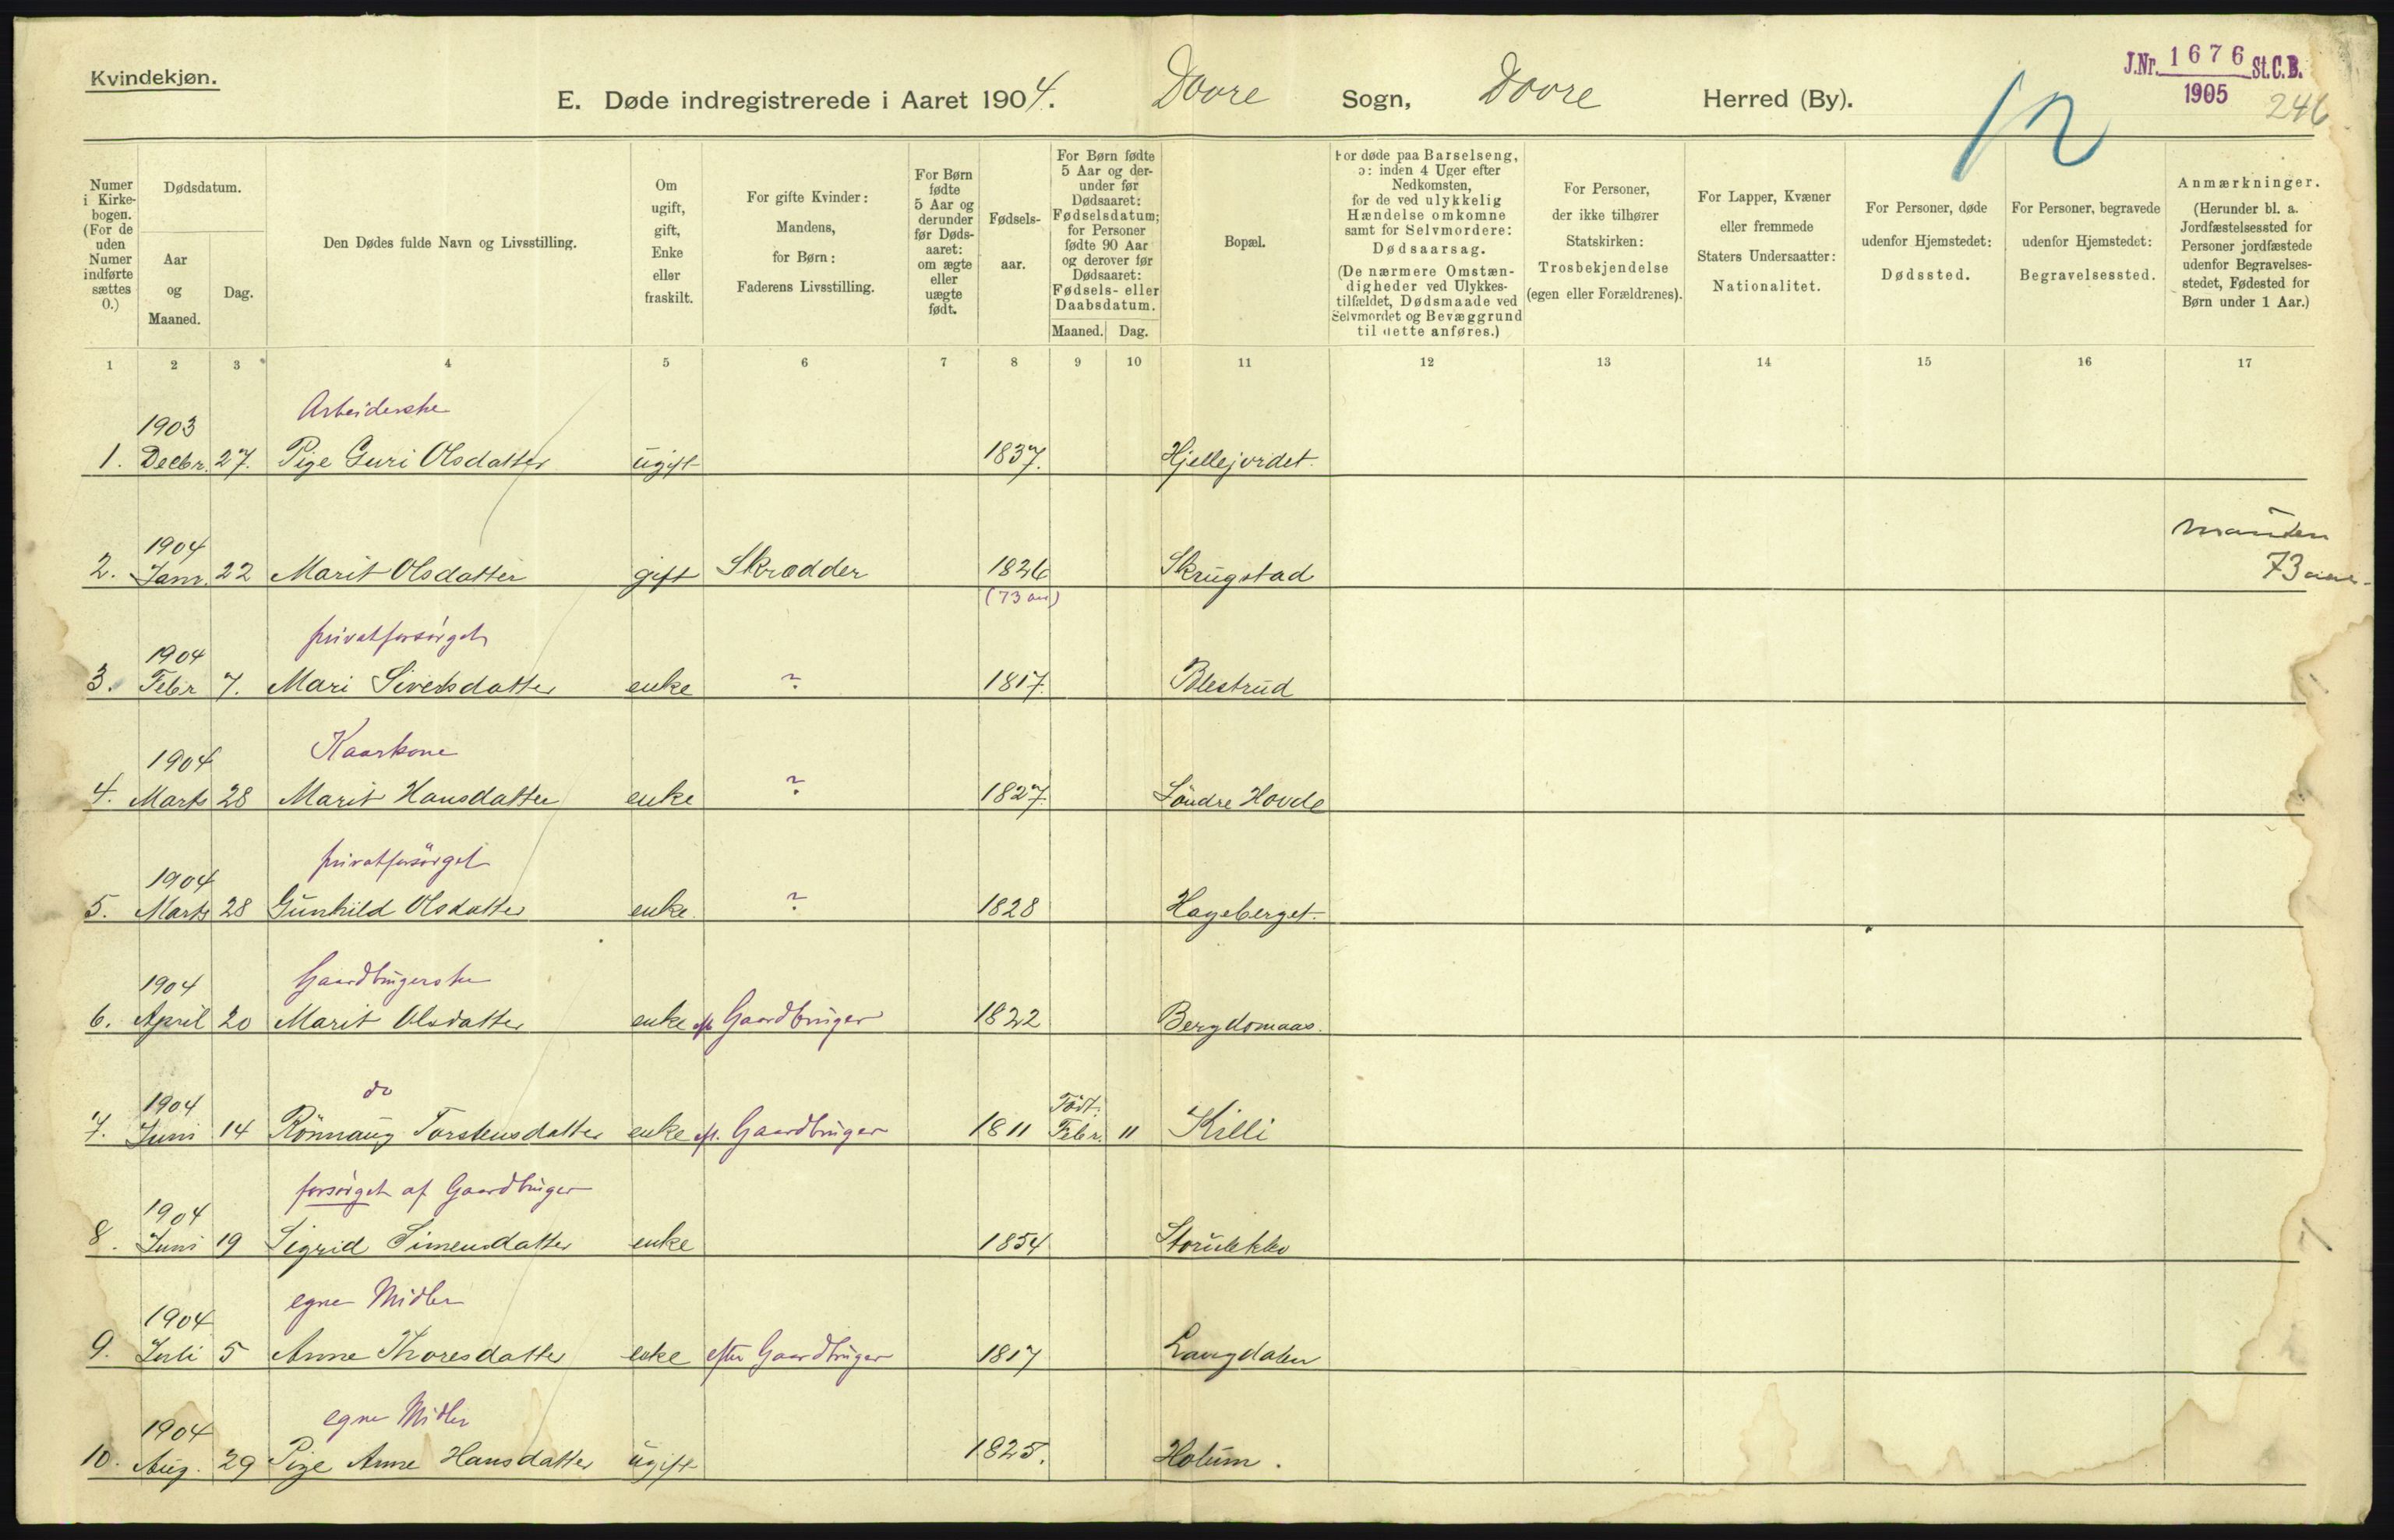 Kvindekjøn.
E. Døde indregistrerede i Aaret 1904. Dovre Sogn, Dovre Herred (By).
J.Nr. 1676 St.C.B.
1905
246
12
Numer i Kirke-bogen. (For de uden Numer indførte sættes 0.)
Dødsdatum.
Aar og Maaned.
Dag.
Den Dødes fulde Navn og Livsstilling.
Om ugift, gift, Enke eller fraskilt.
For gifte Kvinder: Mandens, for Børn: Faderens Livsstilling.
For Børn fødte 5 Aar og derunder før Døds-aaret: om ægte eller uægte født.
Fødsels-aar.
For Børn fødte 5 Aar og der-under før Dødsaaret: Fødselsdatum; for Personer fødte 90 Aar og derover før Dødsaaret: Fødsels- eller Daabsdatum.
Maaned. Dag.
Bopæl.
For døde paa Barselseng, ɔ: inden 4 Uger efter Nedkomsten, for de ved ulykkelig Hændelse omkomne samt for Selvmordere: Dødsaarsag. (De nærmere Omstæn-digheder ved Ulykkes-tilfældet, Dødsmaade ved Selvmordet og Bevæggrund til dette anføres.)
For Personer, der ikke tilhører Statskirken: Trosbekjendelse (egen eller Forældrenes).
For Lapper, Kvæner eller fremmede Staters Undersaatter: Nationalitet.
For Personer, døde udenfor Hjemstedet: Dødssted.
For Personer, begravede udenfor Hjemstedet: Begravelsessted.
Anmærkninger. (Herunder bl. a. Jordfæstelsessted for Personer jordfæstede udenfor Begravelses-stedet, Fødested for Børn under 1 Aar.)
1 2 3 4 5 6 7 8 9 10 11 12 13 14 15 16 17
1903 Arbeiderske
1. Decbr. 27. Pige Guri Olsdatter ugift 1837. Hjellejordet.
1904 manden
2. Janr. 22 Marit Olsdatter gift Skrædder 1826 Skrugstad 73 aar
(73 aar)
1904 privatforsørget
3. Febr 7. Mari Sivertsdatter enke ? 1817. Blestrud
1904 Kaarkone
4. Marts 28 Marit Hansdatter enke ? 1827. Söndre Hovde
1904 privatforsörget
5. Marts 28 Gunhild Olsdatter enke ? 1828 Hageberget.
1904 Gaardbrugerske
6. April 20 Marit Olsdatter enke eft. Gaardbruger 1822 Bergdomaas.
1904 do Födt.
7. Juni 14 Rönnaug Torstensdatter enke eft. Gaardbruger 1811 Febr. 11 Killi
1904 forsørget af Gaardbruger
8. Juni 19 Sigrid Simensdatter enke 1854
1904 egne Midler
9. Juli 5 Anne Thoresdatter enke efter Gaardbruger 1817 Langdalen
1904 egne Midler
10. Aug. 29 Pige Anne Hansdatter ugift 1825. Holum.